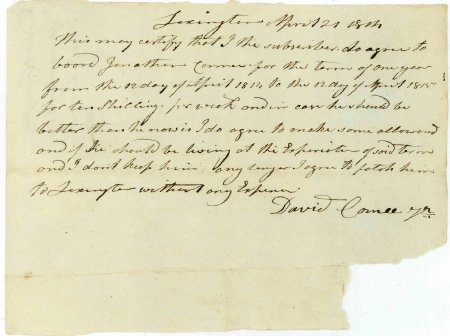 Lexington April 21 1814
This may certify that I the subscriber do agree to
board Jonathan Comee for the term of one year
from the 12 day of April 1814 to the 12 day of April 1815
for ten Shillings per week and in case he should be
better than he now is I do agree to make some allowance
and if he should be living at the Experiete of said term
and I dont keep him any longer I agree to fetch him
to Lexington without any Expence
David Comee Jr